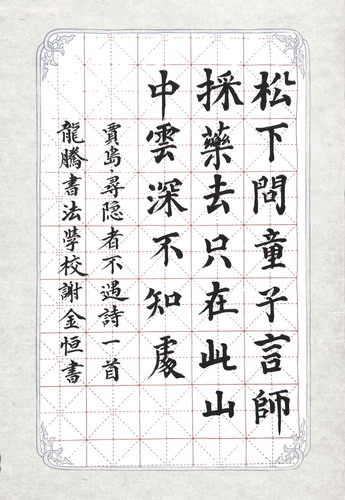 松下問童子言師
採藥去只在此山
中雲深不知處
賈島·尋隐者不遇詩一首
龍騰書法學校謝金恒書